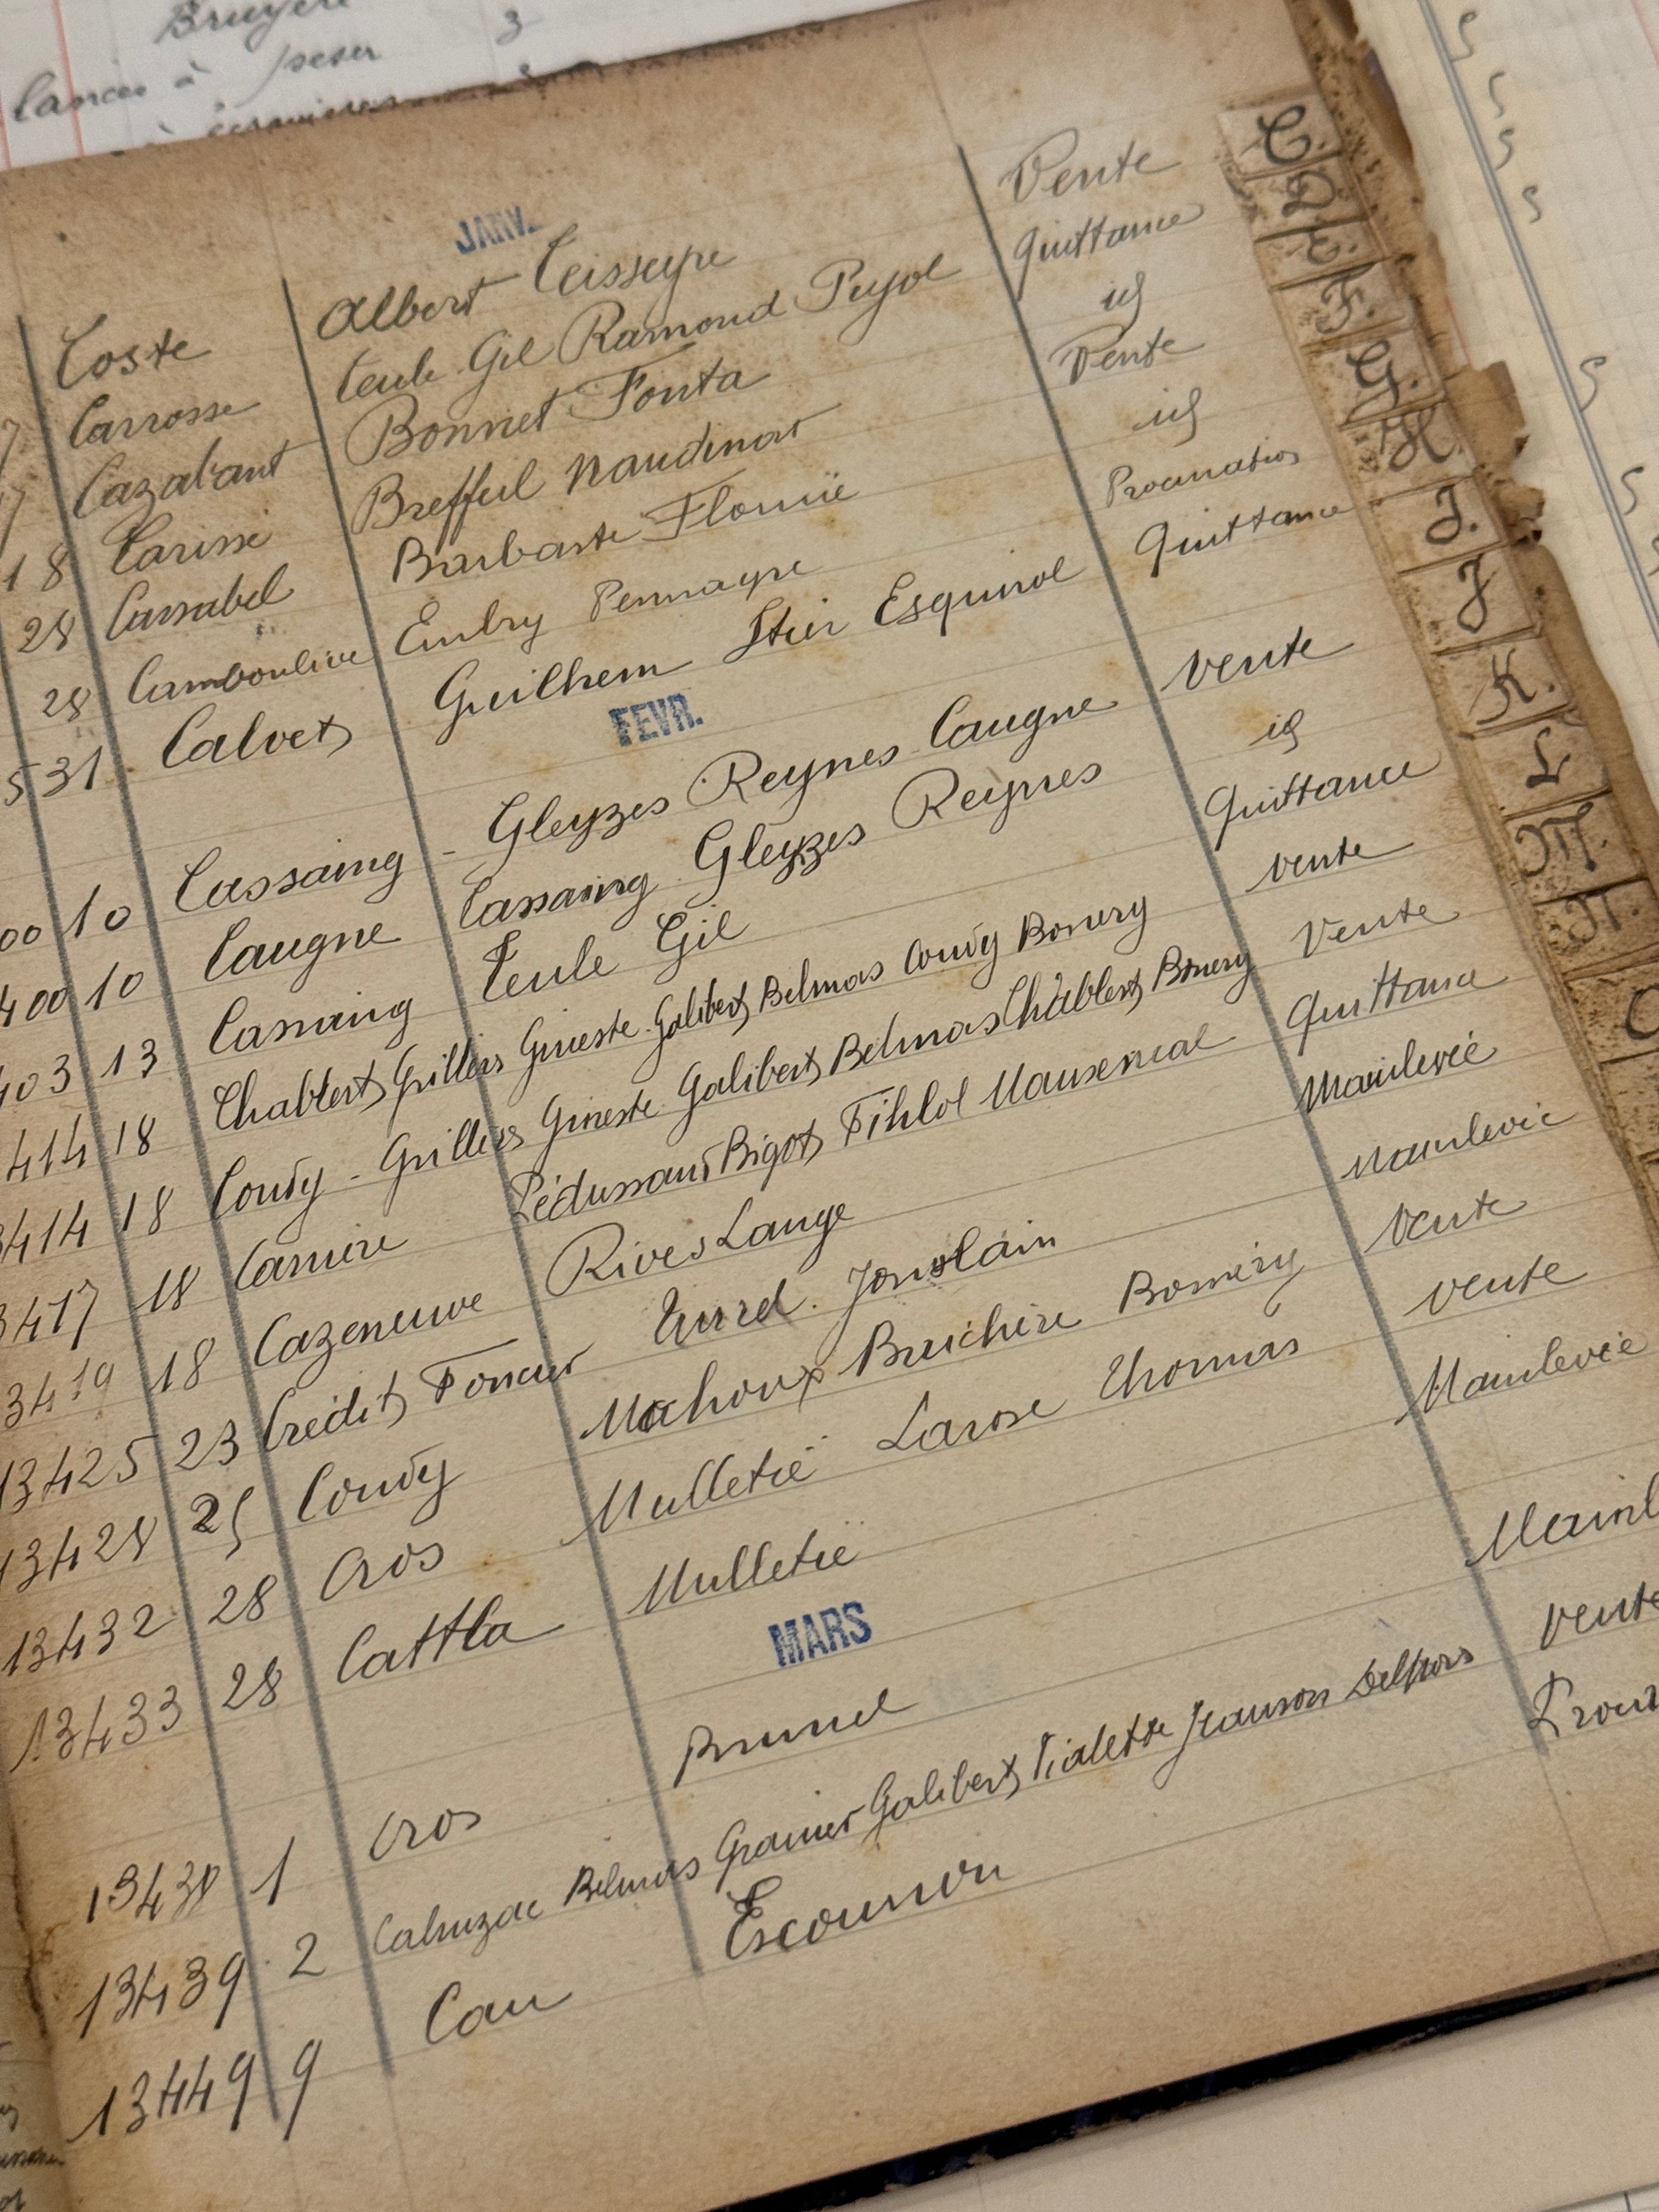 Bruyère
lances à peser 3
à
JANV.
Coste Albert Teisseyre Vente
7 Carrosse Teule Gil Ramond Pujol Quittance
7 Cazabant Bonnet Fonta id
18 Carisse Breffeil Naudinat Vente
28 Cassabel Barbaste Flourié id
28 Camboulive Embry Pennayre Procuration
531 Calvet Guilhem Itier Esquirol Quittance
FEVR.
00 10 Cassaing - Gleyzes Reynes Caugne Vente
400 10 Caugne Cassaing Gleyzes Reynes id
403 13 Cassaing Teule Gil Quittance
414 18 Chabbert Grillères Gineste Galibert Belmas Coudy Bonery Vente
3414 18 Coudy - Grillères Gineste Galibert Belmas Chabbert Bonery Vente
3417 18 Carrière Pédussaud Bigot Fihlol Mausencal Quittance
3419 18 Cazeneuve Rives Lange Mainlevée
13425 23 Crédit Foncier Turrel. Jouslain Mainlevée
13428 25 Coudy Mahoux Bruchère Bonnéry Vente
13432 28 Cros Mulletié Larose Thomas Vente
13433 28 Cattla Mulletié Mainlevée
MARS
13438 1 Cros Brunel Mainl
13439 2 Cahuzac Belmas Granier Galibert Vialette Jeanson Delpors Vente
13449 9 Cau Escourrou Procur
C.
D.
E.
F.
G.
H.
I.
J
K.
L
M.
N.
O